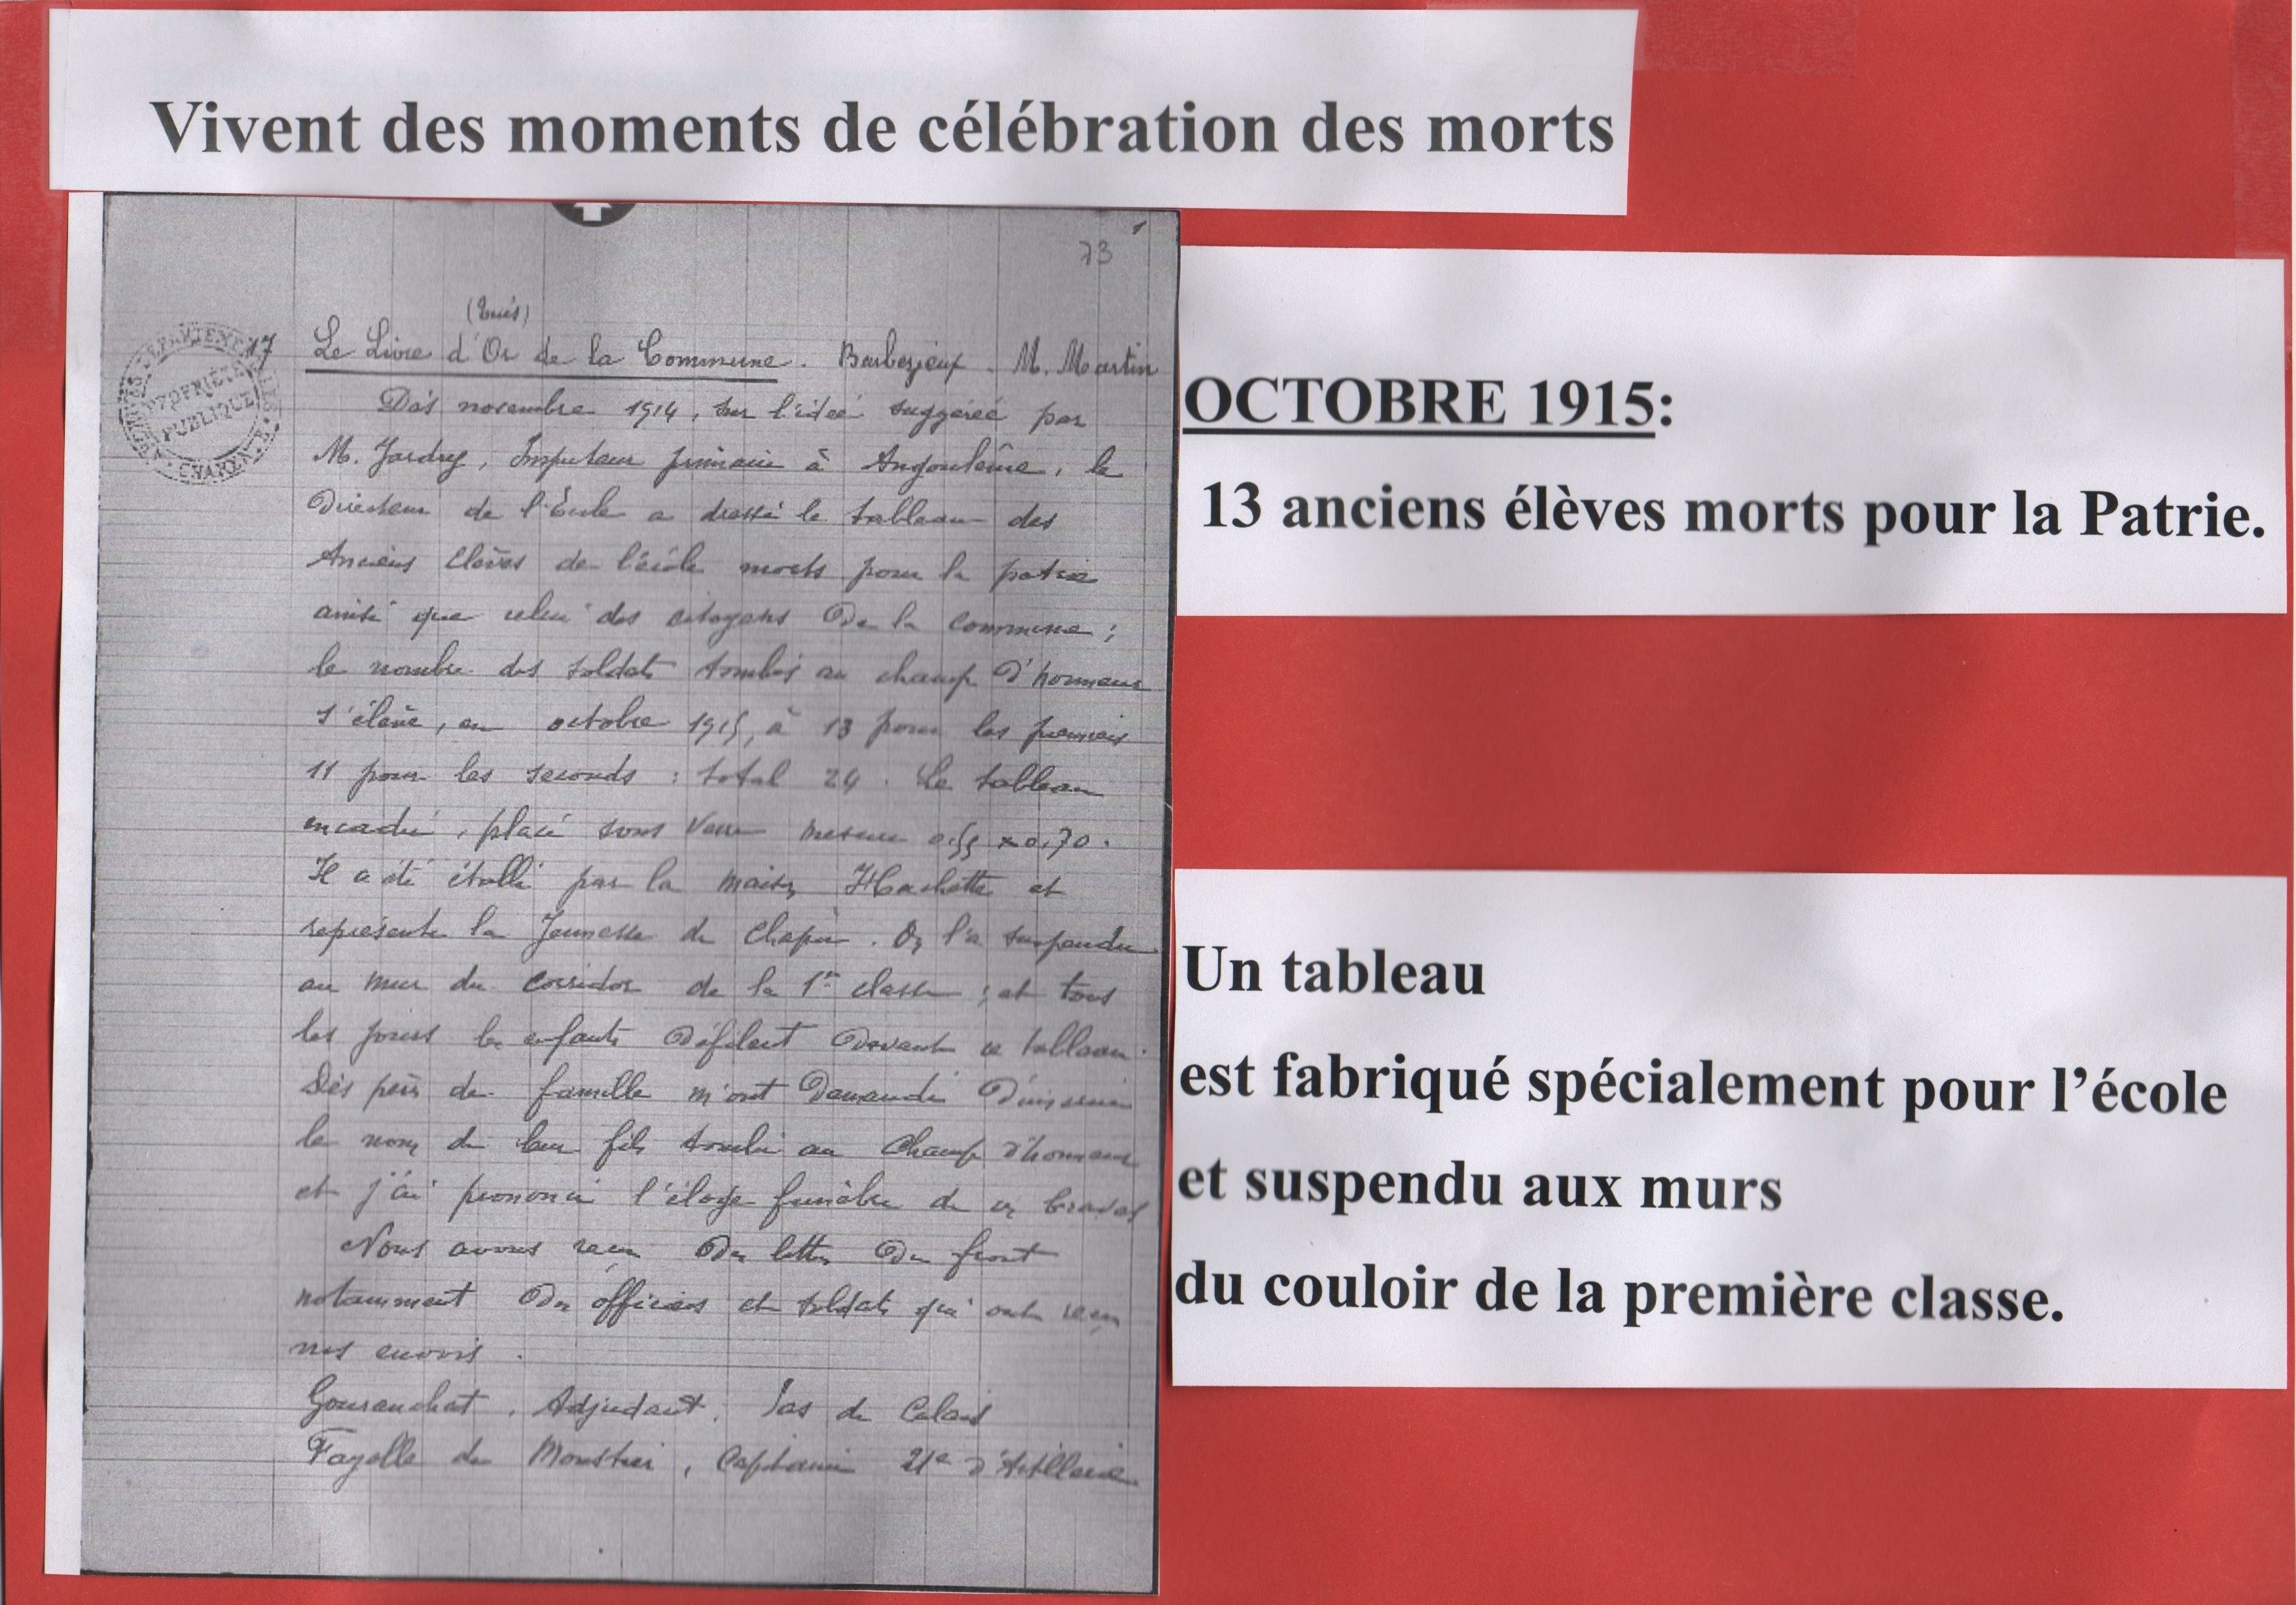 Vivent des moments de célébration des morts
73
17
(tués)
Le Livre d'Or de la Commune. Barbezieux. M. Martin
Dès novembre 1914, sur l'idée suggérée par
M. Jardry, Inspecteur primaire à Angoulême, le
Directeur de l'École a dressé le tableau des
Anciens élèves de l'école morts pour la patrie
ainsi que celui des citoyens de la commune ;
le nombre des soldats tombés au champ d'honneur
s'élève, en octobre 1915, à 13 pour les premiers
11 pour les seconds : total 24. Le tableau
encadré, placé sous verre mesure 0,55 x 0,70.
Il a été établi par la maison Hachette et
représente la Jeunesse de Chapu. On l'a suspendu
au mur du corridor de la 1re classe ; et tous
les jours les enfants défilent devant ce tableau.
Des pères de famille m'ont demandé d'inscrire
le nom de leur fils tombé au champ d'honneur
et j'ai prononcé l'éloge funèbre de ces braves
Nous avons reçu des lettres du front
notamment des officiers et soldats qui ont reçu
nos envois.
Gouranchat, Adjudant, Pas de Calais
Fayolle du Moustier, Capitaine 21e d'Artillerie
ARCHIVES DEPARTEMENTALES
PROPRIÉTÉ
PUBLIQUE
CHARENTE
OCTOBRE 1915:
13 anciens élèves morts pour la Patrie.
Un tableau
est fabriqué spécialement pour l'école
et suspendu aux murs
du couloir de la première classe.